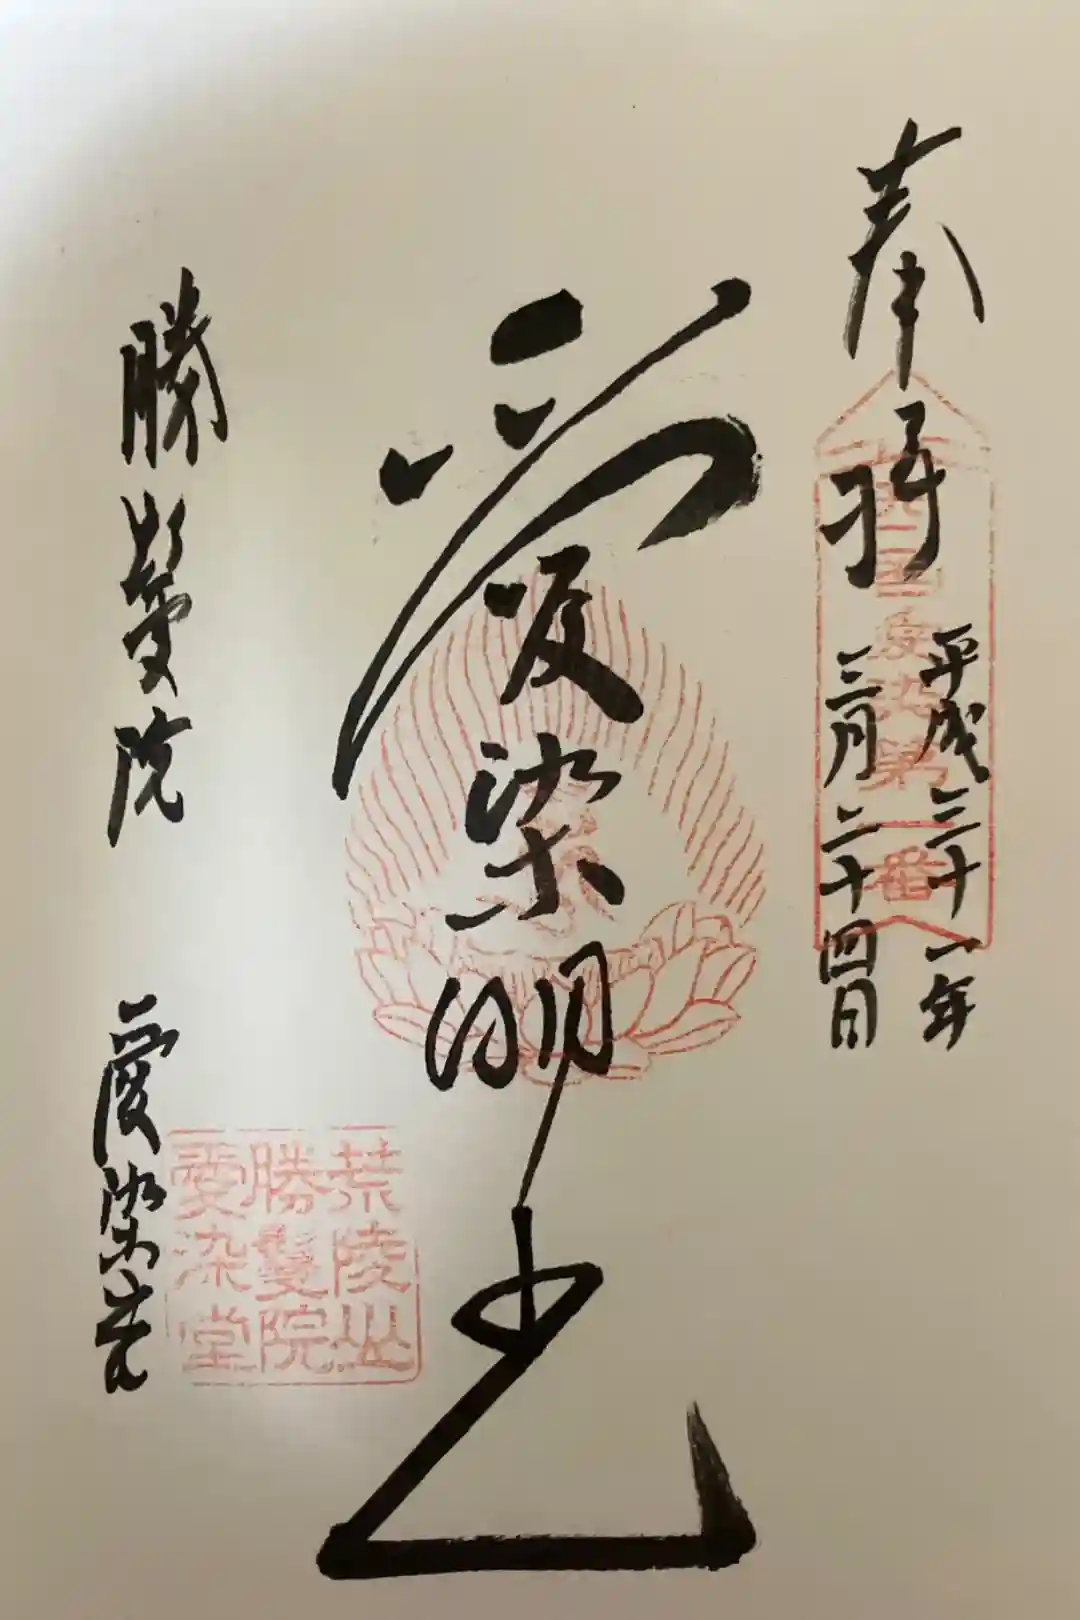 奉拝
平成三十一年
三月二十四日
西国愛染第一番
愛染明王
勝鬘院 愛染堂
荒陵山
勝鬘院
愛染堂